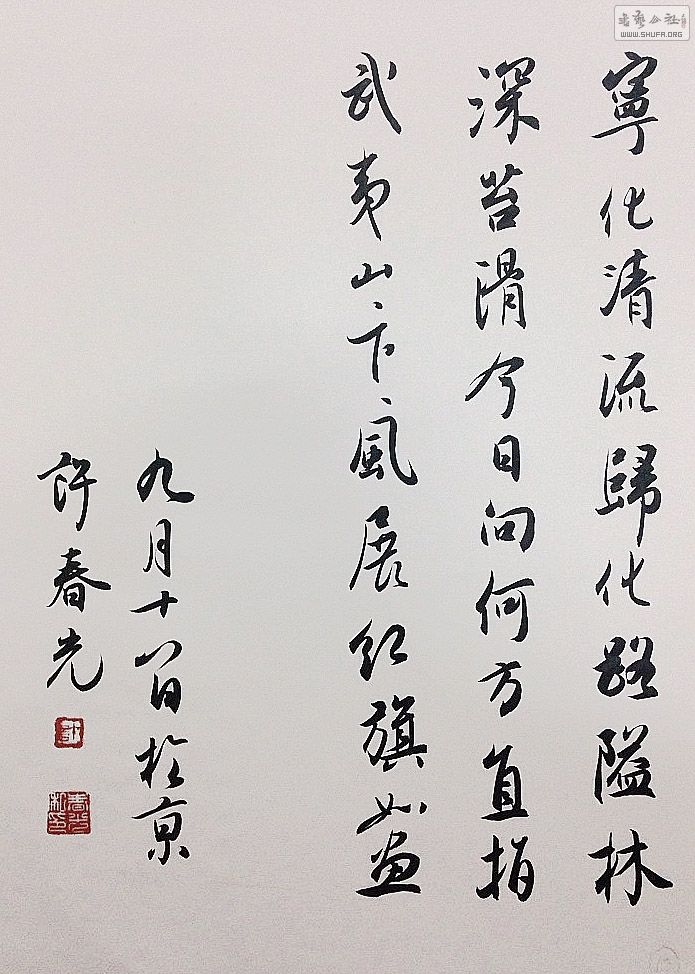 寧化清流歸化路隘林
深苔滑今日问何方直指
武夷山、下、風展红旗如畫
九月十八日於京
許春光
許
春光私印
書藝公社
WWW.SHUFA.ORG